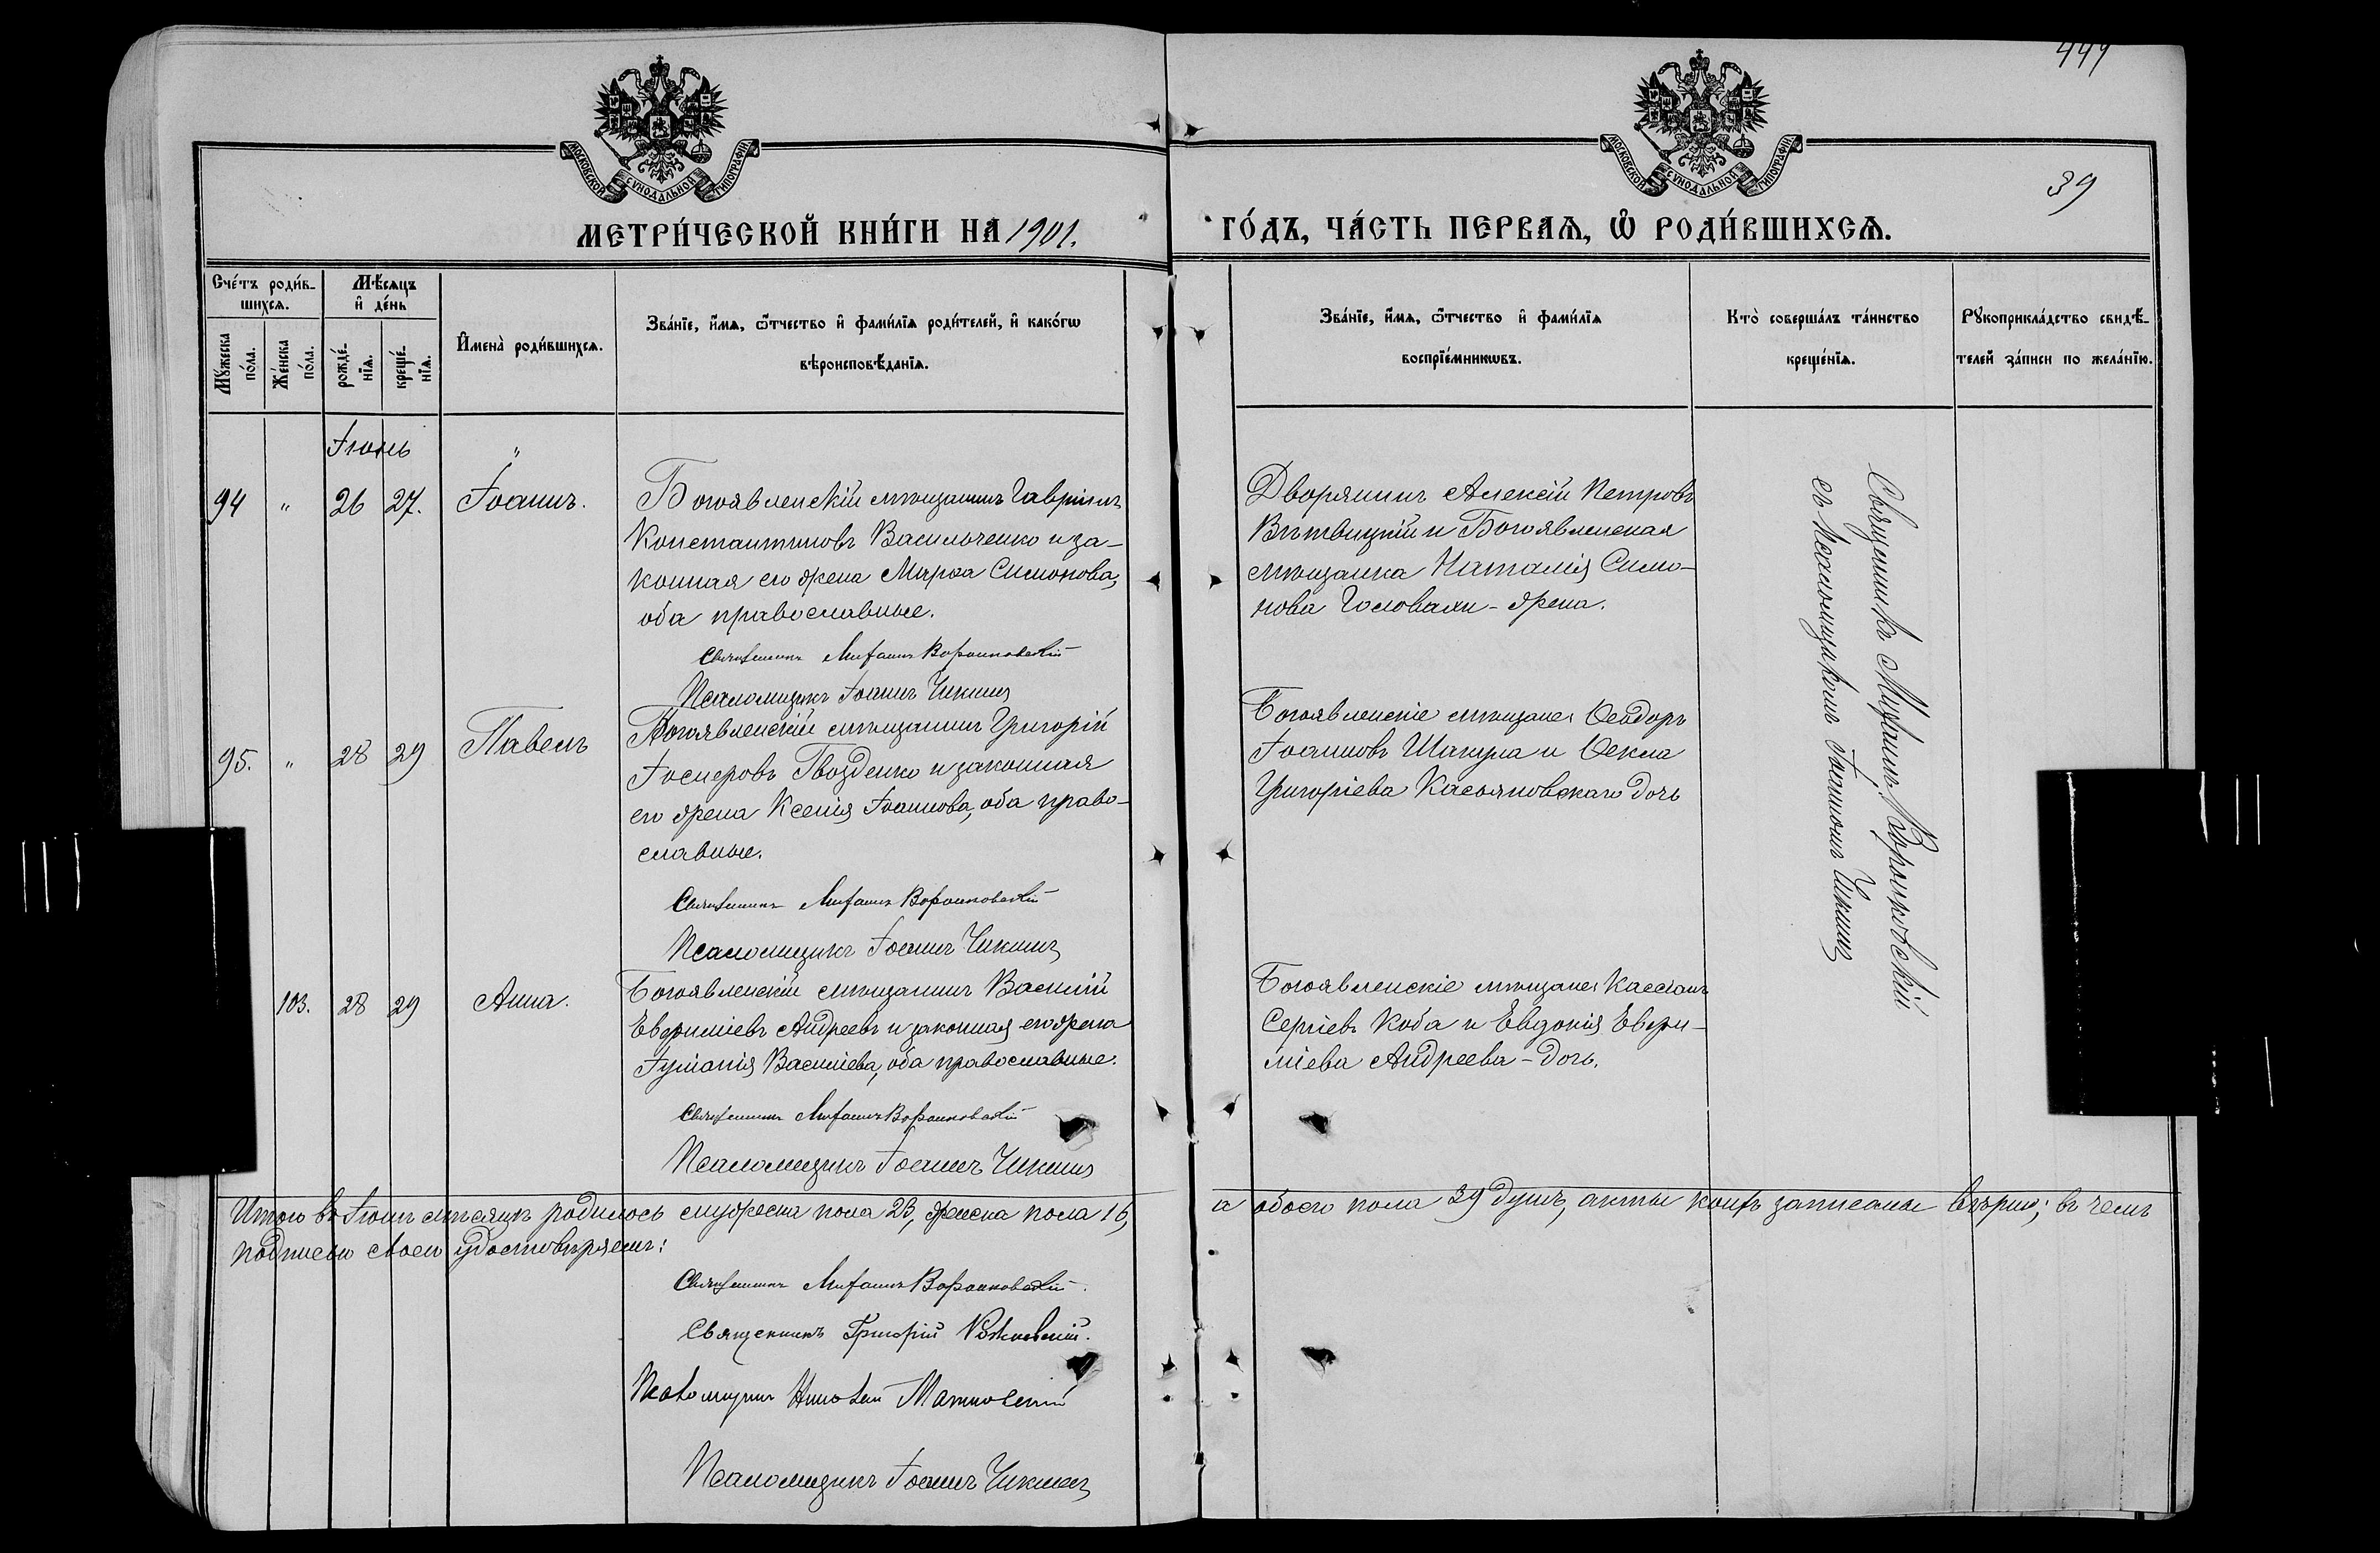 449
39
МОСКОВСКОЙ СѴНОДАЛЬНОЙ ТИПОГРАФІИ
МОСКОВСКОЙ СѴНОДАЛЬНОЙ ТИПОГРАФІИ
МЕТРИ́ЧЕСКОЙ КНИ́ГИ НА 1901. ГО́ДЪ, ЧА́СТЬ ПЕРВАѦ, Ѡ҆ РОДИ́ВШИХСѦ.
Сче́тъ роди́в-
шихсѧ.
Мꙋ́жеска
по́ла.
Же́нска
по́ла.
Мѣ́сѧцъ
и҆ де́нь
рожде́-
нїѧ.
креще́-
нїѧ.
И҆мена̀ роди́вшихсѧ.
Зва́нїе, и҆́мѧ, ѻ҆́тчество и҆ фами́лїѧ роди́телей, и҆ како́гѡ
вѣроисповѣ́данїѧ.
Зва́нїе, и҆́мѧ, ѻ҆́тчество и҆ фами́лїѧ
воспрїе́мникѡвъ.
Кто̀ соверша́лъ та́инство
креще́нїѧ.
Рꙋкоприкла́дство свидѣ́-
телей за́писи по жела́нїю.
Іюнь "
94 " 26 27. Іоаннъ.
Богоявленскій мѣщанинъ Гавріилъ
Константиновъ Васильченко и за-
конная его жена Марѳа Симонова,
оба православные.
Священникъ Митрофанъ Воронковскій
Псаломщикъ Іоаннъ Чикинъ
Дворянинъ Алексій Петровъ
Витвицкій и Богоявленская
мѣщанка Наталія Симо-
нова Головахи - жена.
95. " 28 29 Павелъ
Богоявленскій мѣщанинъ Григорій
Іосифовъ Гвозденко и законная
его жена Ксенія Іоаннова, оба право-
славные.
Священникъ Воронковскій
Псаломщикъ Іоаннъ Чикинъ
Богоявленскіе мѣщане: Ѳеодоръ
Іоанновъ Шакула и Ѳекла
Григоріева Касьяновскаго дочь
103. 28 29 Анна.
Богоявленскій мѣщанинъ Василій
Евѳиміевъ Андреевъ и законная его жена
Іуліанія Василіева, оба православные.
Священникъ Воронковскій
Псаломщикъ Іоаннъ Чикинъ
Богоявленскіе мѣщане: Кассіанъ
Сергіевъ Коба и Евдокія Евѳи-
міева Андреева - дочь.
Священникъ Воронковскій
съ Псаломщикомъ Іоанномъ Чикинъ
Итого въ Іюнѣ мѣсяцѣ родилось мужеска пола 23, женска пола 16, а обоего пола 39 душъ, акты коихъ записаны вѣрно; въ чемъ
подписью своею удостовѣряемъ:
Священникъ Воронковскій.
Священникъ Григорій
Псаломщикъ Николай
Псаломщикъ Іоаннъ Чикинъ